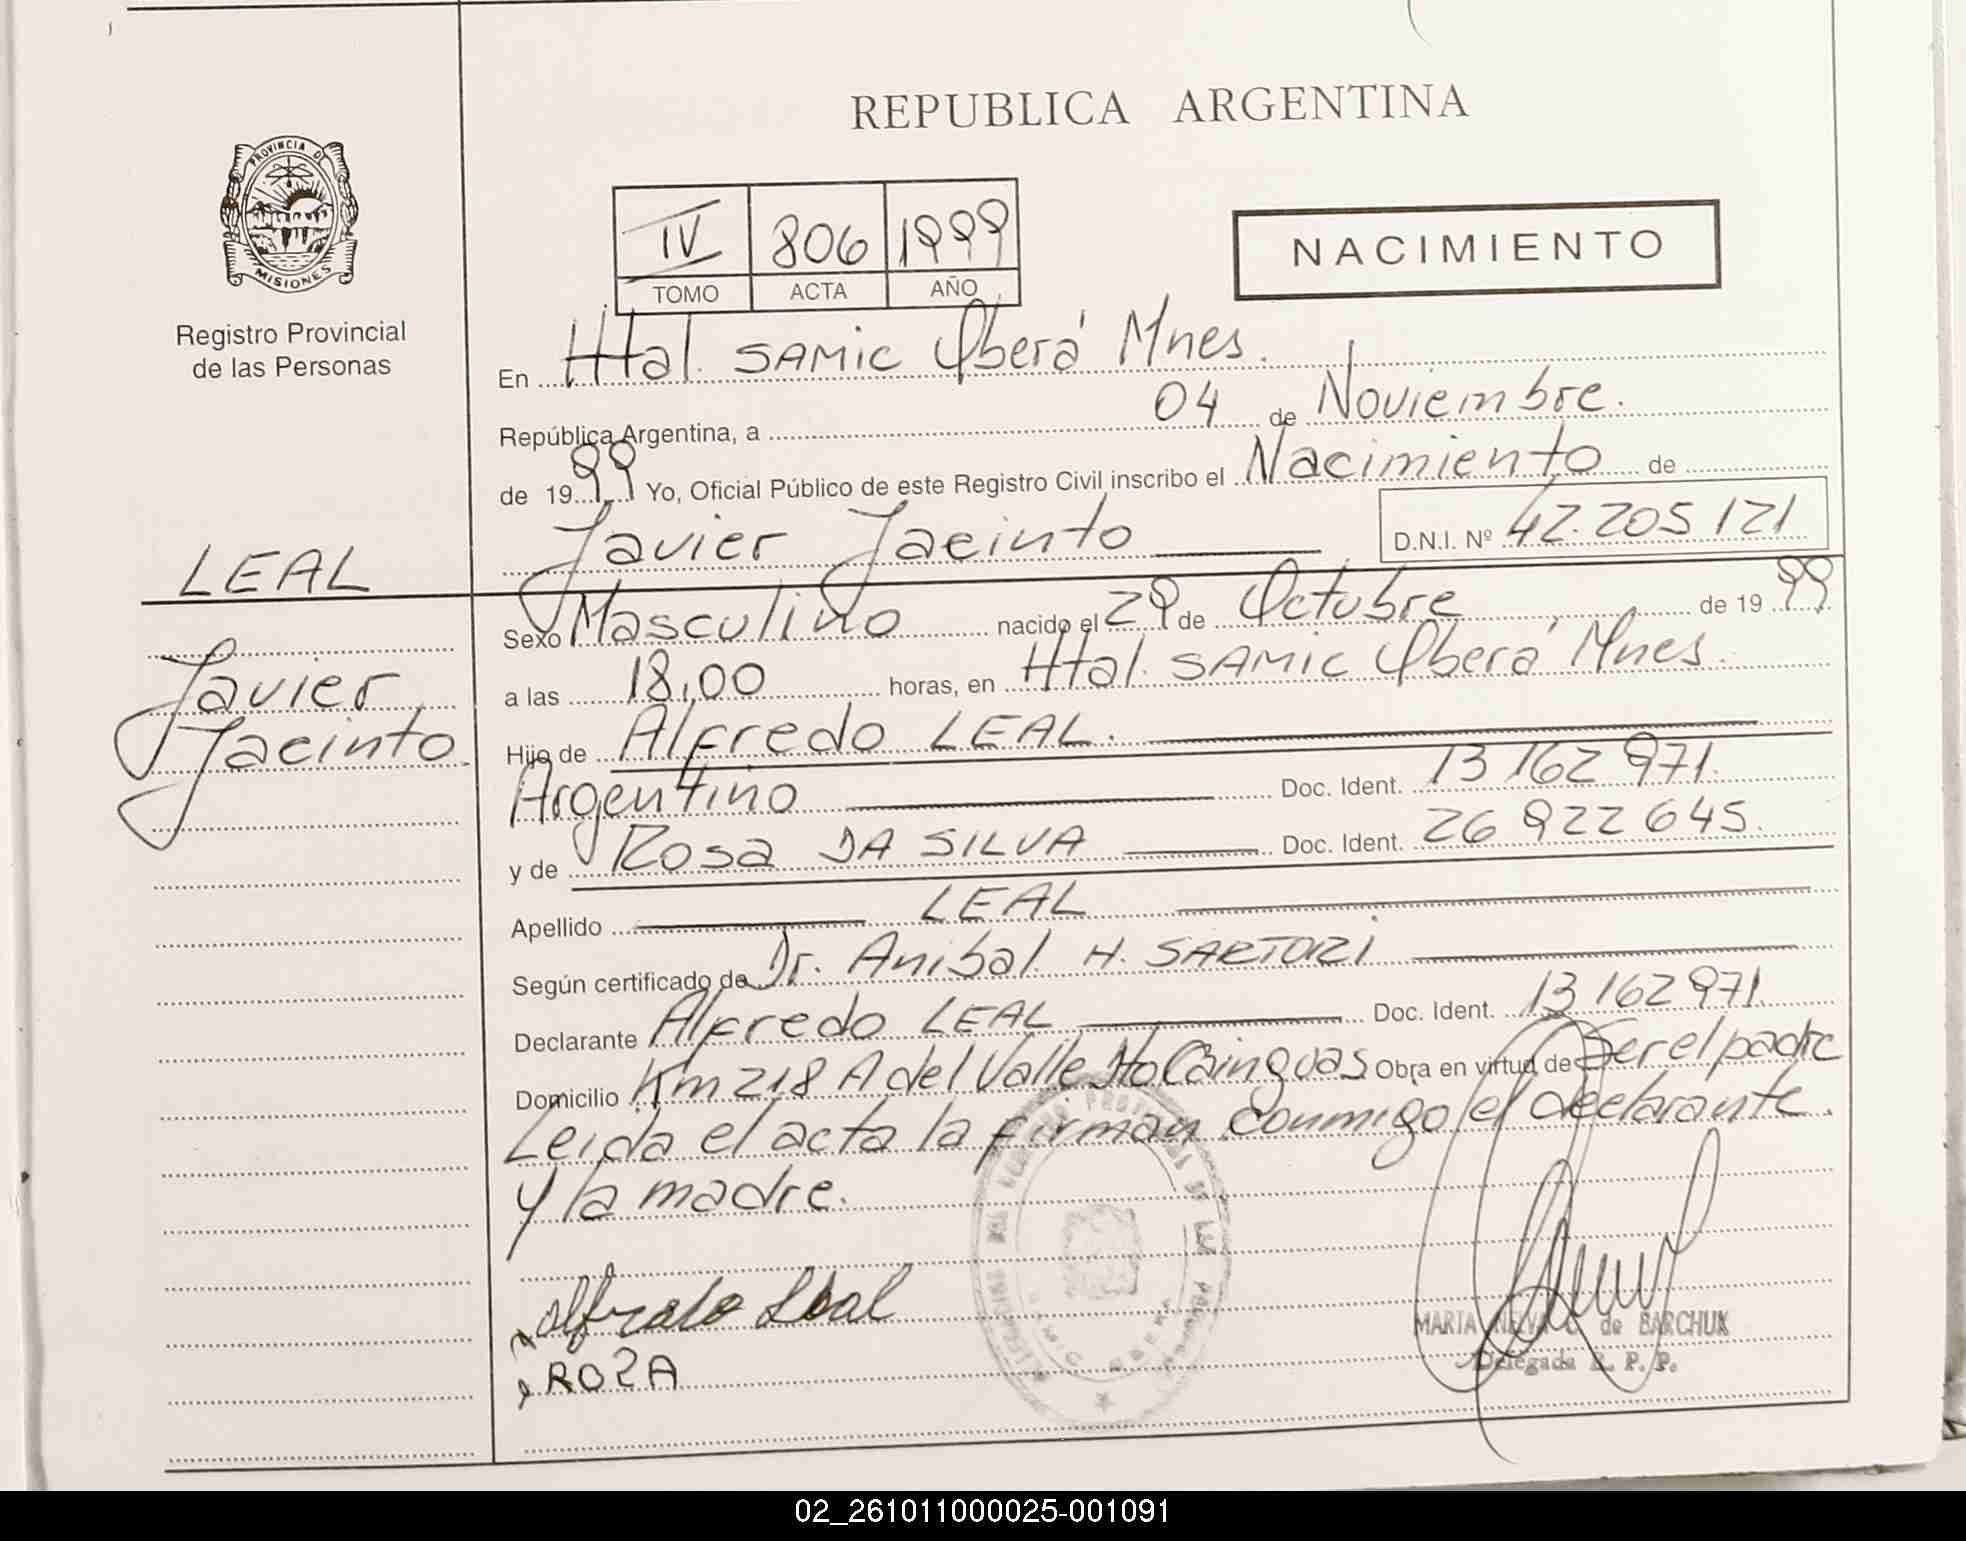 REPUBLICA ARGENTINA
PROVINCIA DE
MISIONES
Registro Provincial
de las Personas
IV 806 1999
TOMO ACTA AÑO
NACIMIENTO
En Htal. SAMIC Oberá Mnes.
República Argentina, a 04 de Noviembre.
de 1999 Yo, Oficial Público de este Registro Civil inscribo el Nacimiento de
Javier Jacinto D.N.I. Nº 42.205 121
LEAL
Javier
Jacinto
Sexo Masculino nacido el 29 de Octubre de 1999
a las 18,00 horas, en Htal. SAMIC Oberá Mnes.
Hijo de Alfredo LEAL.
Argentino Doc. Ident. 13 162 971.
y de Rosa DA SILVA Doc. Ident. 26 922 645.
Apellido LEAL
Según certificado de Dr. Anibal H. SARTORI
Declarante Alfredo LEAL Doc. Ident. 13 162 971
Domicilio Km 218 A del Valle Obra en virtud de Ser el padre
Leida el acta la firman conmigo el declarante
y la madre.
alfredo Leal
ROZA
MARIA de BARCHUK
Delegada R. P. P.
02_261011000025-001091